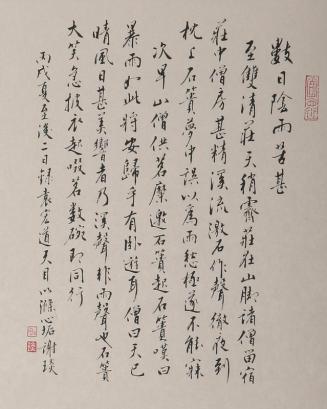 數日陰雨苦甚
至雙清莊天稍霽莊在山腳諸僧留宿
莊中僧房甚精溪流激石作聲徹夜到
枕上石簣夢中誤以為雨愁極遂不能寐
次早山僧供茗糜邀石簣起石簣嘆曰
暴雨如此將安歸乎有臥遊耳僧曰天已
晴風日甚美響者乃溪聲非雨聲也石簣
大笑急披衣起啜茗數碗即同行
丙戌夏至後二日錄袁宏道天目以滌心垢謝琰